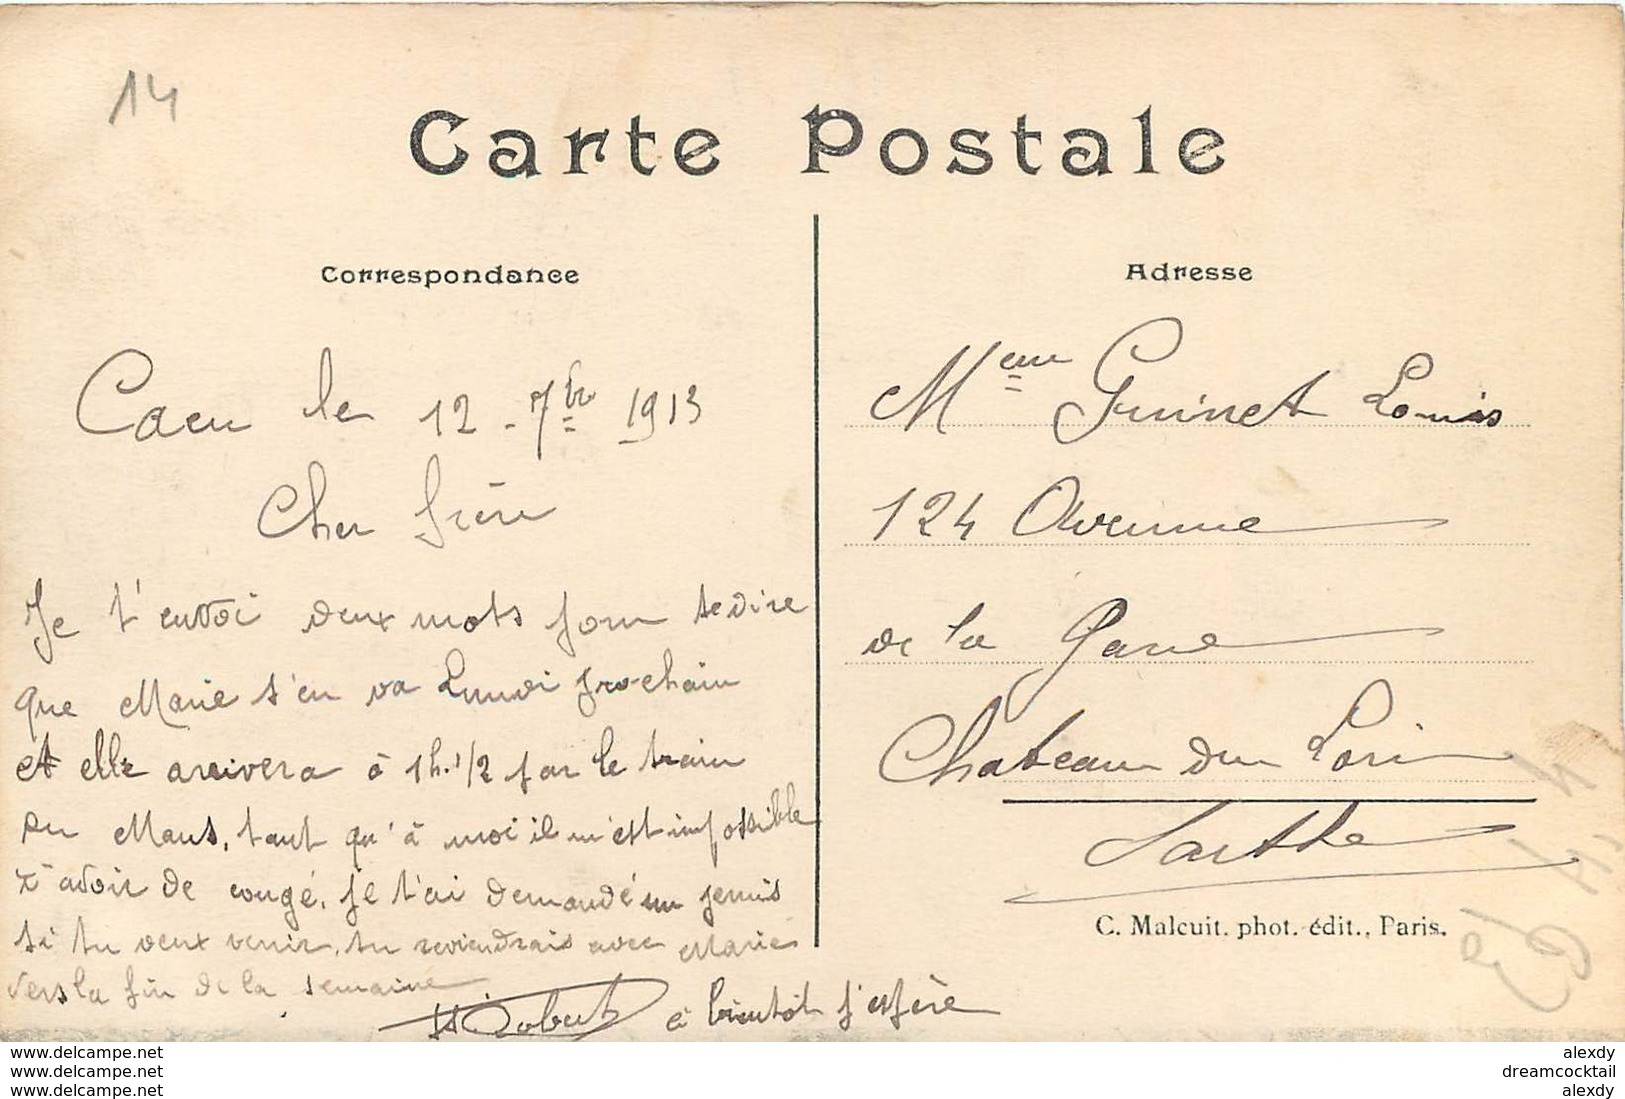 14
Carte Postale
Correspondance
Caen le 12 - 7bre 1913
Cher frère
Je t'envoi deux mots pour te dire
que Marie s'en va Lundi prochain
et elle arrivera à 1h.1/2 par le train
du Mans, tant qu'à moi il m'est impossible
d'avoir de congé. Je t'ai demandé un permis
si tu veux venir, tu reviendrais avec Marie
vers la fin de la semaine
à bientôt j'espère
Adresse
Mme Guinet Louis
124 Avenue
de la Gare
Chateau du Loir
Sarthe
C. Malcuit. phot. édit., Paris.
www.delcampe.net
www.delcampe.net
www.delcampe.net
alexdy
dreamcocktail
alexdy